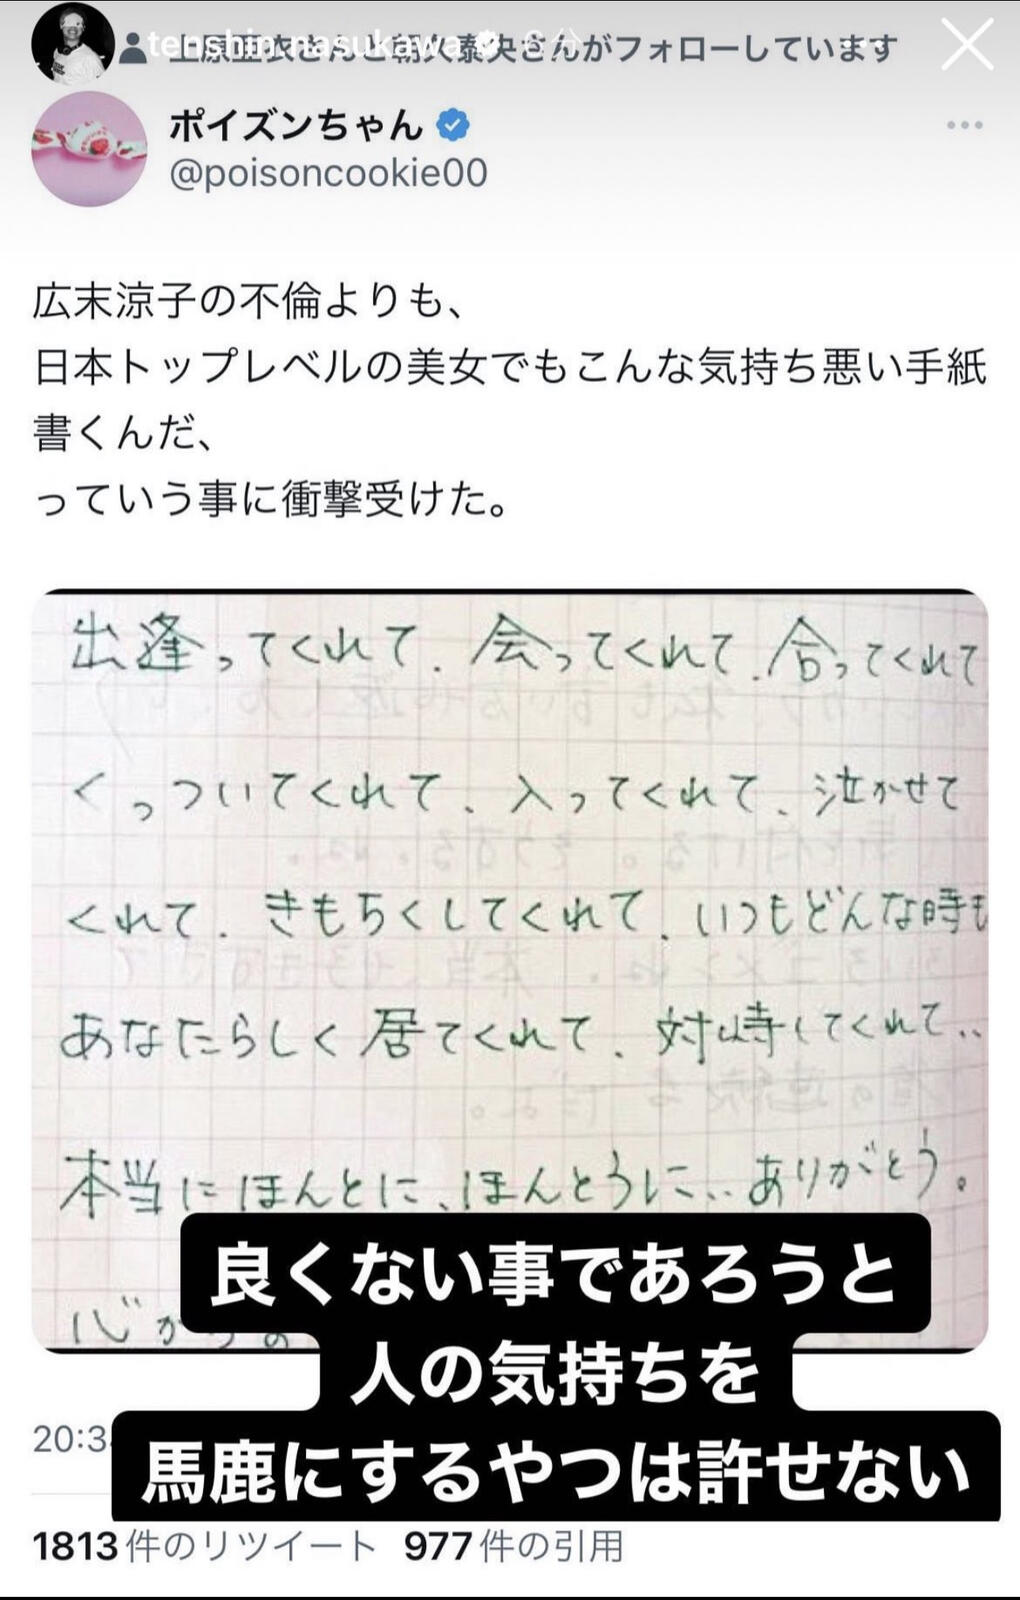 tenshin nasukawa 6分
上原亜衣さんと朝久泰央さんがフォローしています
ポイズンちゃん
@poisoncookie00
広末涼子の不倫よりも、
日本トップレベルの美女でもこんな気持ち悪い手紙
書くんだ、
っていう事に衝撃受けた。
出逢ってくれて、会ってくれて、合ってくれて
くっついてくれて、入ってくれて、泣かせて
くれて、きもちくしてくれて、いつもどんな時も
あなたらしく居てくれて、対峙してくれて、、
本当にほんとに、ほんとうに、、ありがとう。
心か
良くない事であろうと
人の気持ちを
馬鹿にするやつは許せない
20:3
1813件のリツイート 977件の引用